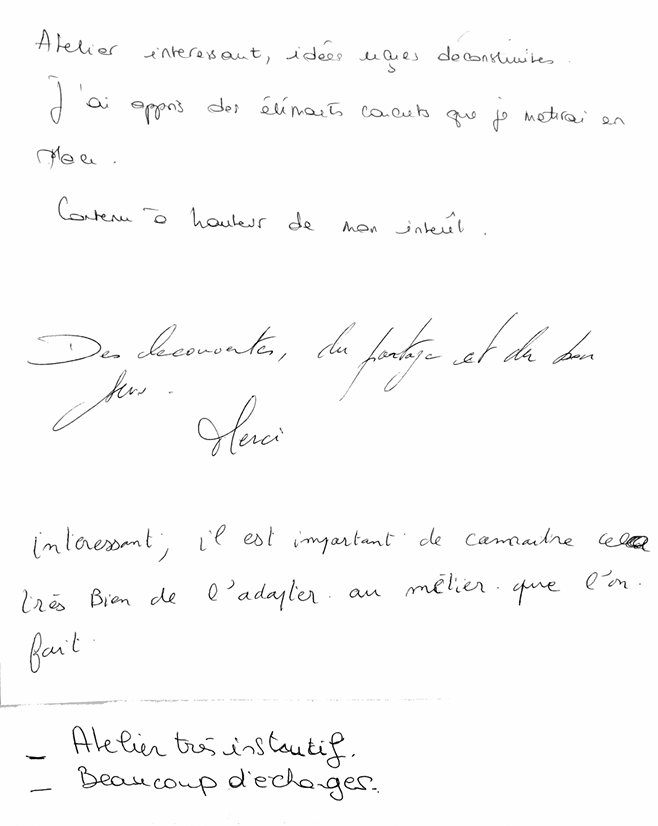 Atelier interessant, idées reçues déconstruites.
J'ai appris des éléments concrets que je mettrai en
place.
Contenu à hauteur de mon intérêt.
Des decouvertes, du partage et du bon
sens.
Merci
interessant, il est important de connaitre cela
très Bien de l'adapter au métier que l'on
fait
- Atelier très instructif.
- Beaucoup d'echanges.